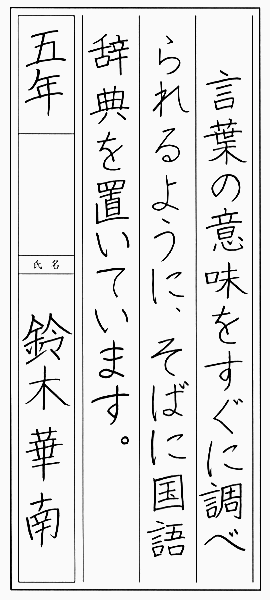 言葉の意味をすぐに調べ
られるように、そばに国語
辞典を置いています。
五年
氏名
鈴木華南